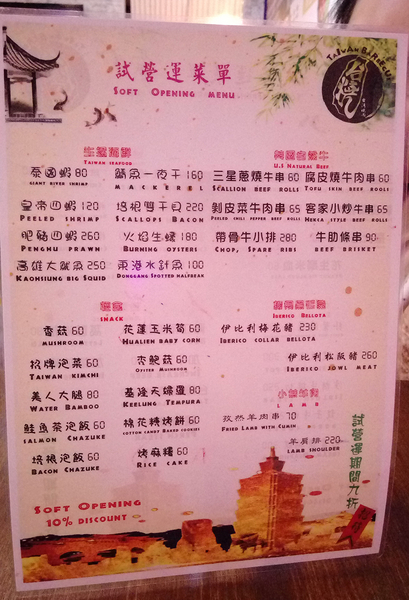 TAIWAN BARBECUE
試營運菜單
SOFT OPENING MENU
生猛海鮮
TAIWAN SEAFOOD
泰國蝦 80
GIANT RIVER SHRIMP
鯖魚一夜干 160
MACKEREL
皇帝四蝦 120
PEELED SHRIMP
培根雙干貝 220
SCALLOPS BACON
肥豬四蝦 260
PENGHU PRAWN
火焰生蠔 180
BURNING OYSTERS
高雄大魷魚 250
KAOHSIUNG BIG SQUID
東港水針魚 100
DONGGANG SPOTTED HALFBEAK
美國自然牛
U.S NATURAL BEEF
三星蔥燒牛串 60
SCALLION BEEF ROLLS
腐皮燒牛肉串 60
TOFU SKIN BEEF ROLLS
剝皮菜牛肉串 65
PEELED CHILI PEPPER BEEF ROLLS
客家小炒牛串 65
HAKKA STYLE BEEF ROLLS
帶骨牛小排 280
CHOP, SPARE RIBS
牛助條串 90
BEEF BRISKET
SNACK
香菇 60
MUSHROOM
花蓮玉米筍 60
HUALIEN BABY CORN
招牌泡菜 60
TAIWAN KIMCHI
杏鮑菇 60
OYSTER MUSHROOM
美人大腿 80
WATER BAMBOO
基隆天婦羅 80
KEELUNG TEMPURA
鮭魚茶泡飯 60
SALMON CHAZUKE
棉花糖烤餅 60
COTTON CANDY BAKED COOKIES
培根泡飯 60
BACON CHAZUKE
烤麻糬 60
RICE CAKE
IBERICO BELLOTA
伊比利梅花豬 230
IBERICO COLLAR BELLOTA
伊比利松阪豬 260
IBERICO JOWL MEAT
LAMB
孜然羊肉串 70
FRIED LAMB WITH CUMIN
羊肩排 220
LAMB SHOULDER
試營運期間九折
SOFT OPENING
10% DISCOUNT